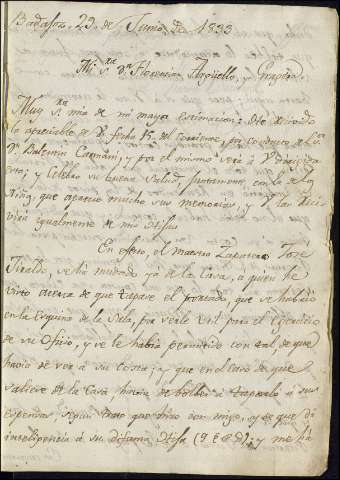 Badajoz, 29 de Junio de 1833
Mi Sra Da Florencia Argüello, y Grajera.
Muy Sra mia de mi mayor estimacion: He recivido
la apreciable de V. fecha 15 del corriente, por conducto de Dn
Dn Baltasar y por el mismo verá V.
y Celebro su buena Salud, juntamente con la de los
Niños, que aprecio mucho sus memorias, y V. las reci-
virá igualmente de mis Hijas
En efecto, el maestro Zapatero José
Giraldo, se ha mudado ya de la Casa, a quien he
visto acerca de que tapase el portado, que se havia
en la Esquina de la Sala, por serle util para el Exercicio
de su Oficio, y se le havia permitido con tal, de que
havia de ser á su costa, y que en el caso de que
saliese de la Casa havia de bolber á taparlo á sus
expensas, segun trato que hizo con migo, y de que di
inteligencia á su difunta Hija (q. e. e. D.); y me ha